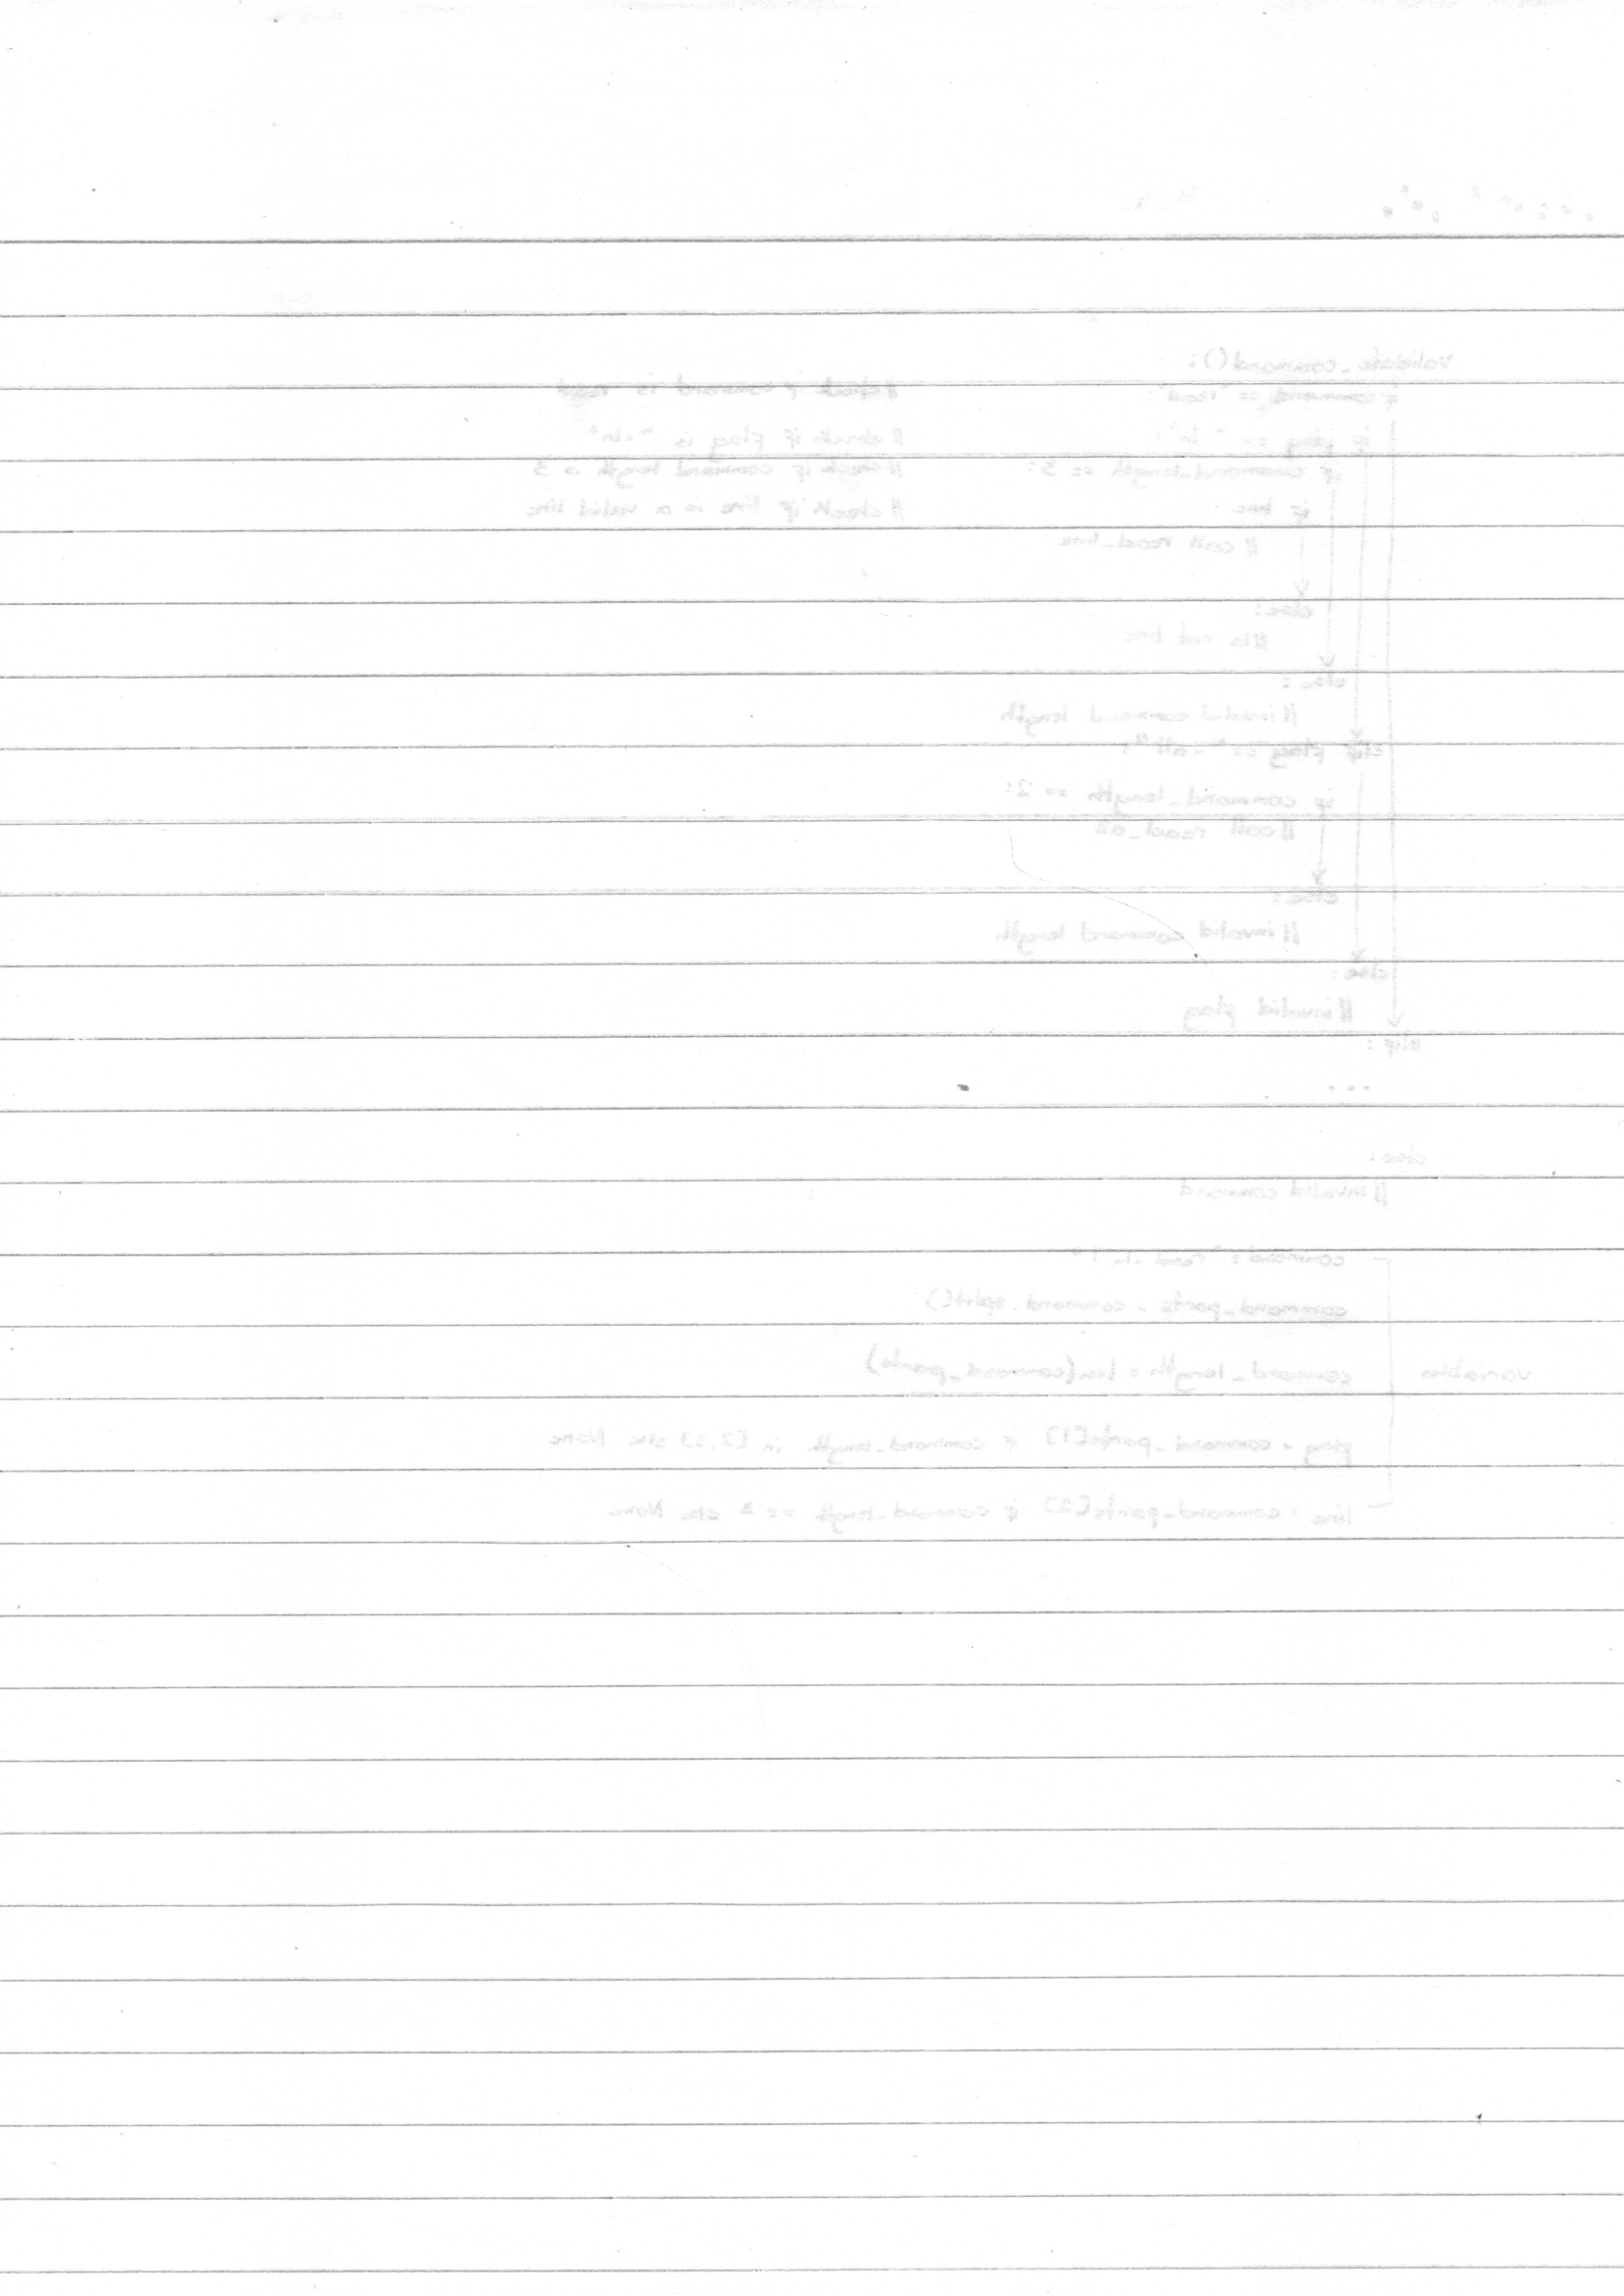 validate_command():
if command == "read": # check if command is read
if flag == "-ln": # check if flag is "-ln"
if command_length == 3: # check if command length is 3
if line # check if line is a valid line
# call read_line
else:
# is not line
else:
# invalid command length
elif flag == "-all":
if command_length == 2:
# call read_all
else:
# invalid command length
else:
# invalid flag
elif:
...
else:
# invalid command
command = "read -ln 1"
command_parts = command.split()
variables command_length = len(command_parts)
flag = command_parts[1] if command_length in [2,3] else None
line = command_parts[2] if command_length == 3 else None